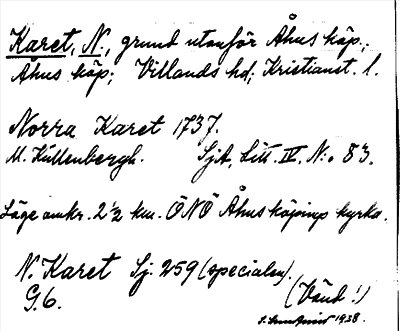 Karet, N., grund utanför Åhus köp.;
Åhus köp; Villands hd; Kristianst. l.
Norra Karet 1737.
M. Kullenbergh. SjA, Litt. IV. N:o 83.
Läge omkr. 2 1/2 km. ÖNÖ Åhus köpings kyrka.
N. Karet Sj. 259 (specialen).
G.6. (Vänd!)
1938.